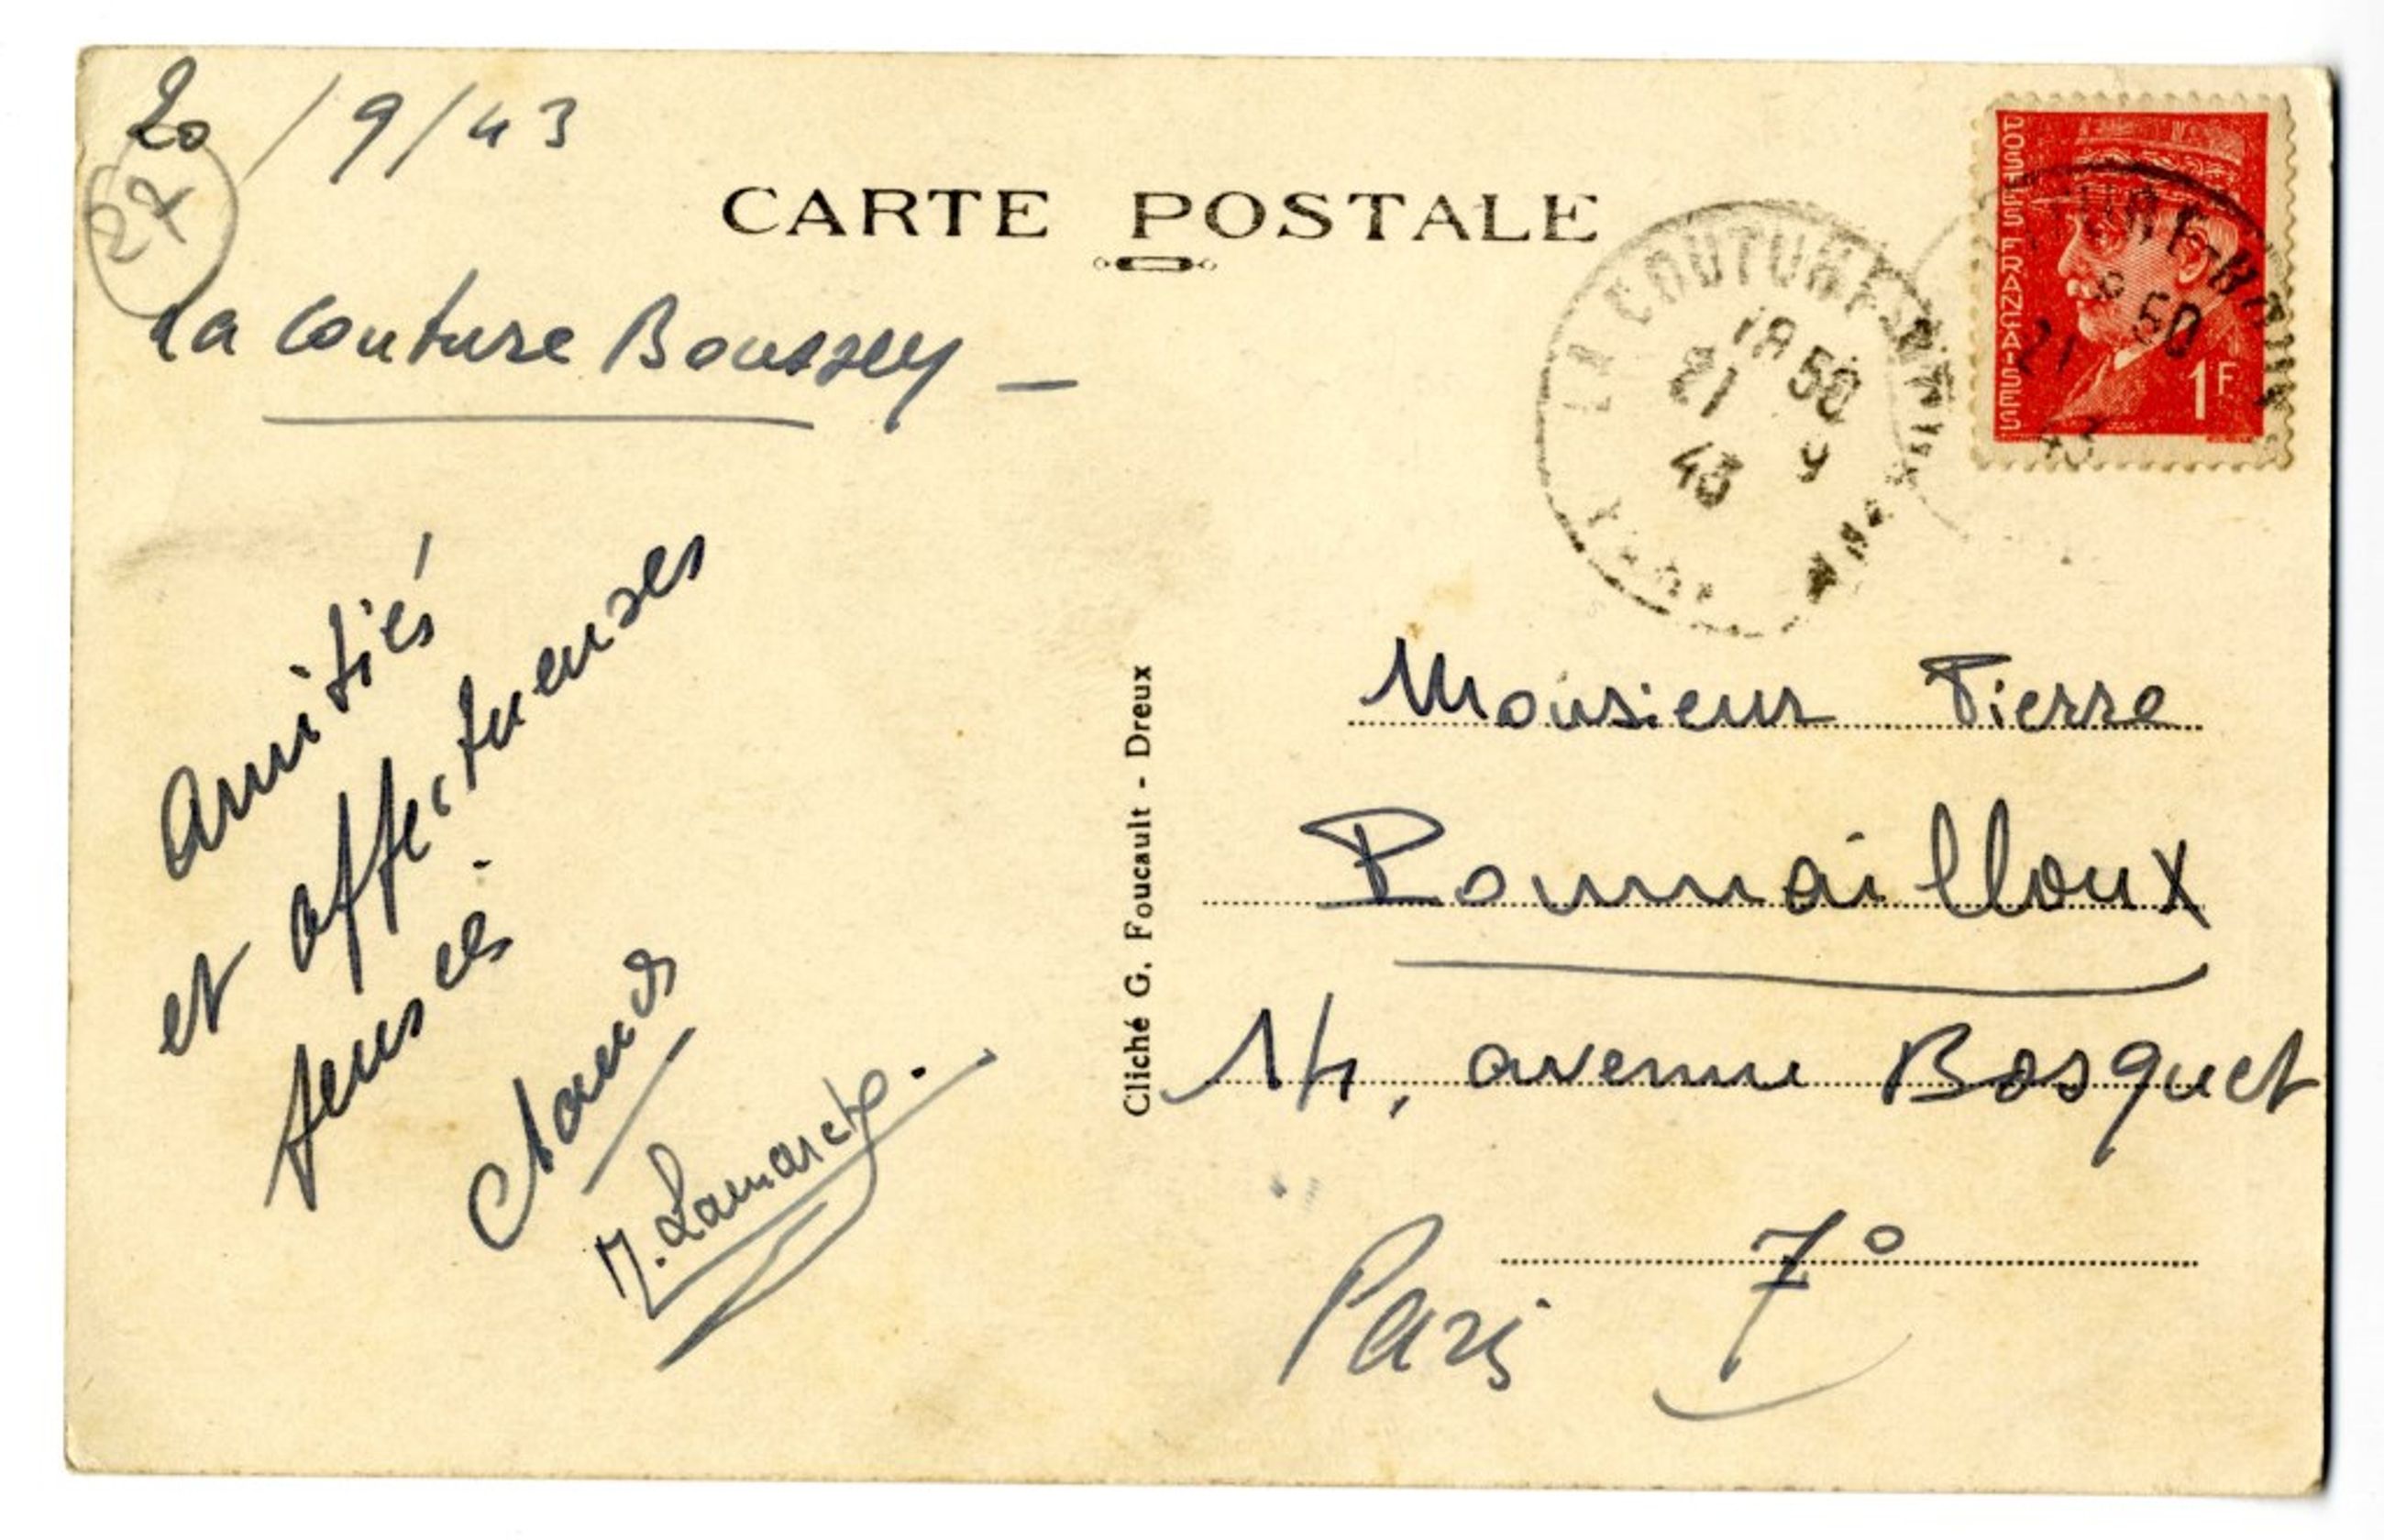 20/9/43
27
CARTE POSTALE
La Couture Boussey —
Amitiés
et affectueuses
pensées.
M. Lamarche.
Cliché G. Foucault - Dreux
LA COUTURE-BOUSSEY
18 50
21 9
43
POSTES FRANÇAISES
1F
50
21
43
Monsieur Pierre
Pommailloux
14, avenue Bosquet
Paris 7°